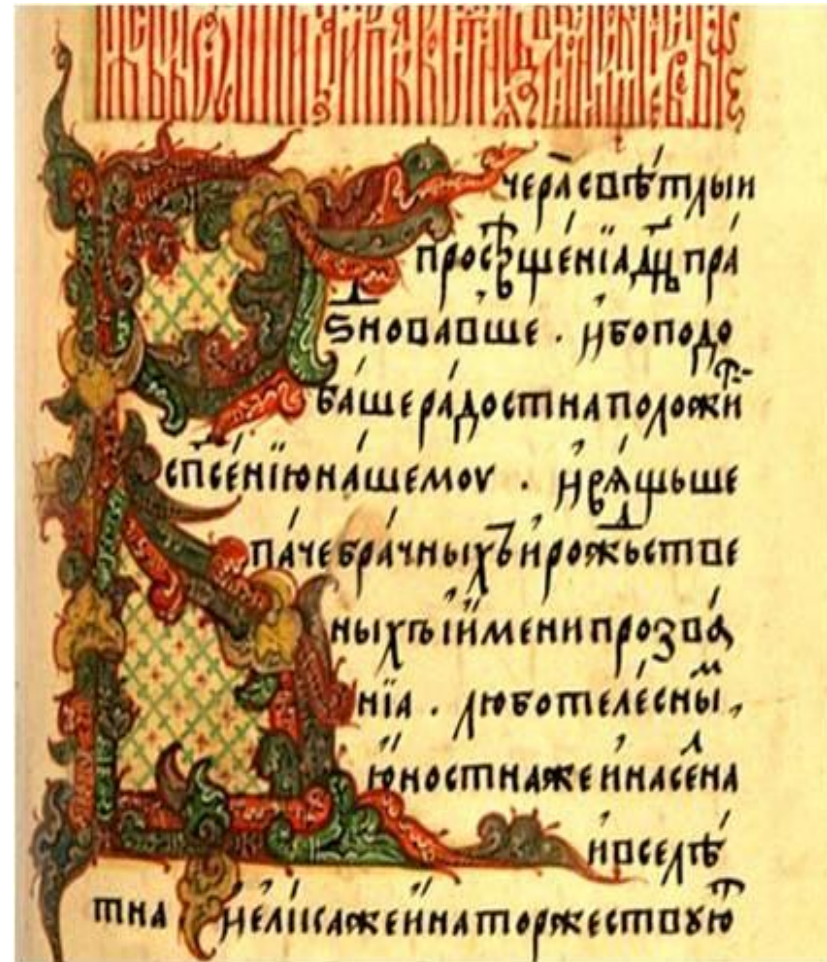 Вчера̀свѣ́тлыи
просвѣще́нїа дн҃ь пра́
ꙁⷣновавше . и҆боподо
ба́шера́достнаположиⷮ
сп҃се́нїюна́шемоу . и҆вѧ́щьше
па́чебра́чныхъи҆рожⷣьстве
ныхъ їи҆менипроꙁва́
нїа . люботеле́сныⷨ ,
ю҆ностнажеи҆насеⷧна
и҆вселѣ́
тна и҆ели́кажеи҆наторжествꙋюⷮ